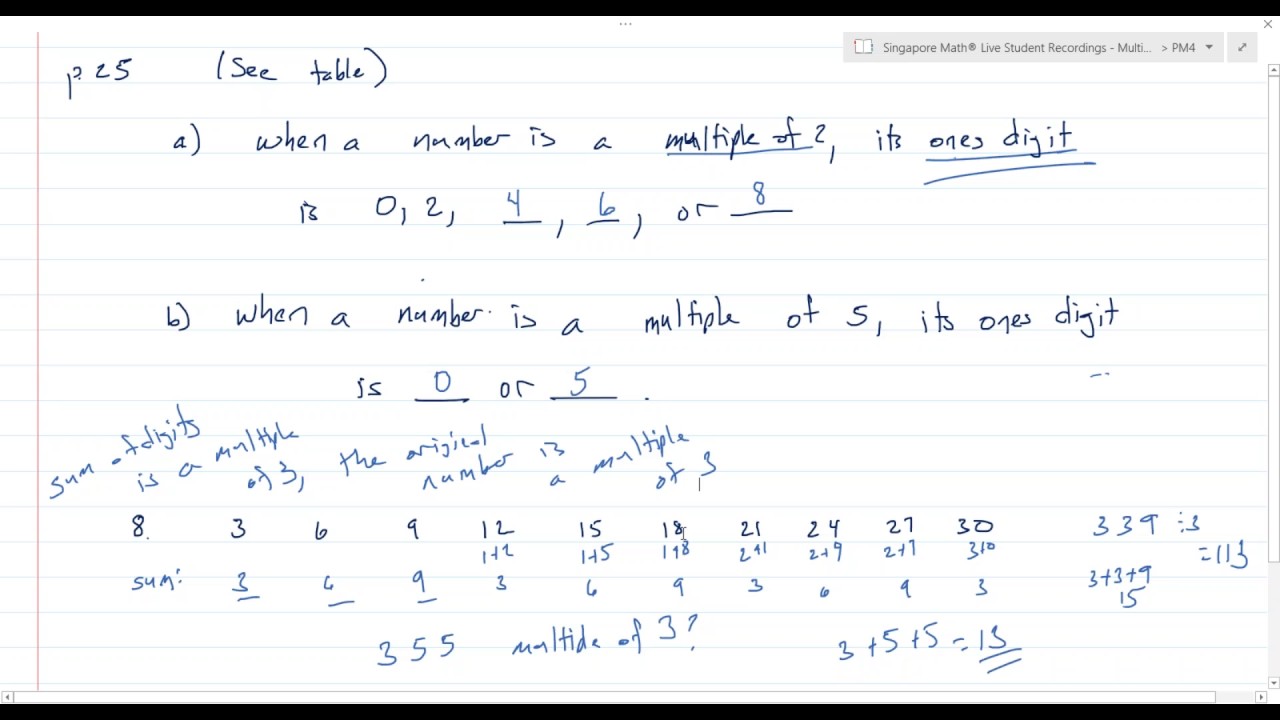 Singapore Math® Live Student Recordings - Multi... > PM4
p.25 (See table)
a) when a number is a multiple of 2, its ones digit
is 0, 2, 4, 6, or 8
b) when a number is a multiple of 5, its ones digit
is 0 or 5.
sum of digits
is a multiple
of 3, the original
number is
a multiple
of 3
8. 3 6 9 12 15 18 21 24 27 30
1+2 1+5 1+8 2+1 2+4 2+7 3+0
sum: 3 6 9 3 6 9 3 6 9 3
339 ÷3
=113
3+3+9
15
355 multiple of 3? 3+5+5=13